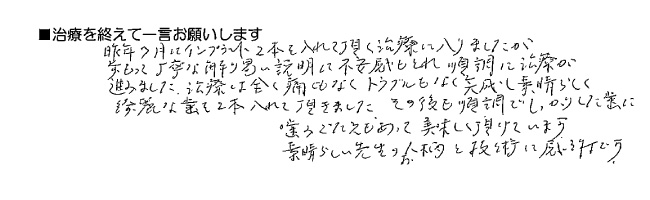 ■治療を終えて一言お願いします
昨年9月にインプラント2本を入れて頂く治療に入りましたが
丁寧な解り易い説明に不安感もとれ 順調に治療が
進みました。治療は全く痛みもなく トラブルもなく完成し素晴らしく
綺麗な歯を2本入れて頂きました その後も順調でし
噛みごたえもあって 美味しく頂けています
素晴らしい先生のお人柄と技術に感謝です